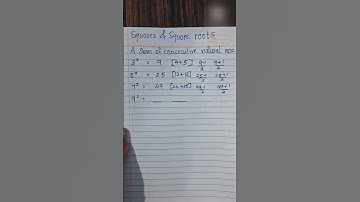 Squares & Square roots
A Sum of consecutive natural nos.
3² = 9 [4+5] 9-1/2 9+1/2
5² = 25 [12+13] 25-1/2 25+1/2
7² = 49 [24+25] 49-1/2 49+1/2
9² = __ __